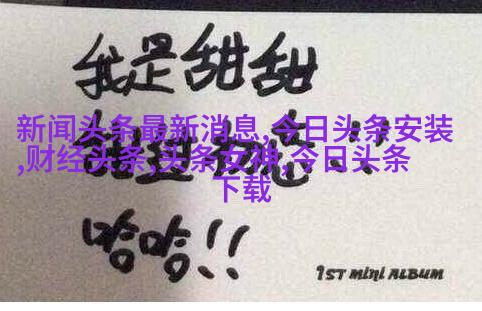 我是甜甜
新闻头条最新消息,今日头条安装
,财经头条,头条女神,今日头条
下载
哈哈!!
1ST MINI ALBUM